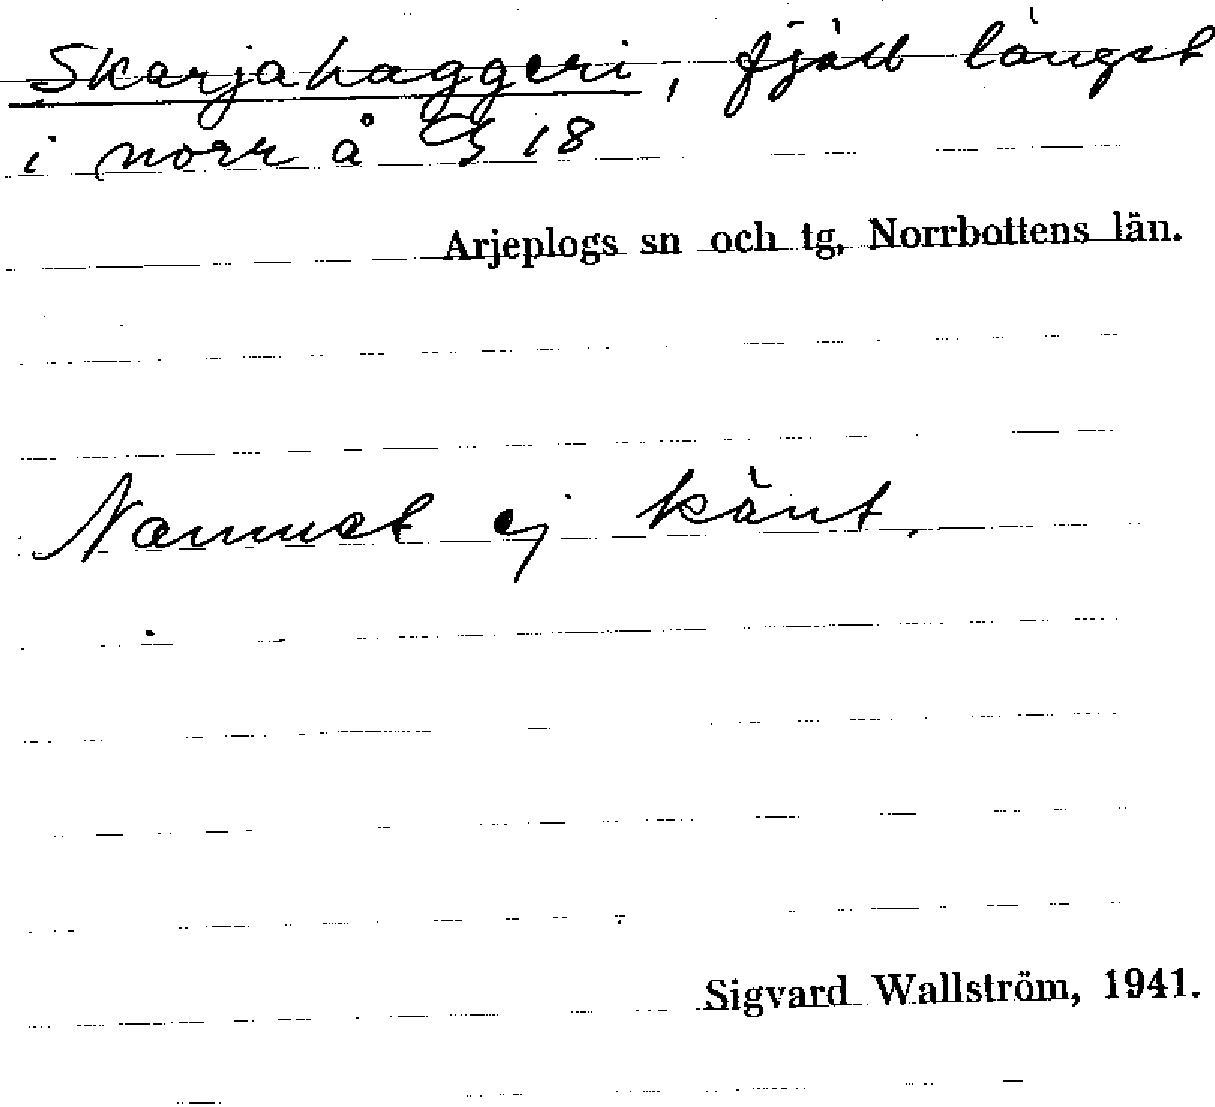 Skarjahaggeri, fjäll längst
i norr å G 18
Arjeplogs sn och tg, Norrbottens län.
Namnet ej känt.
Sigvard Wallström, 1941.